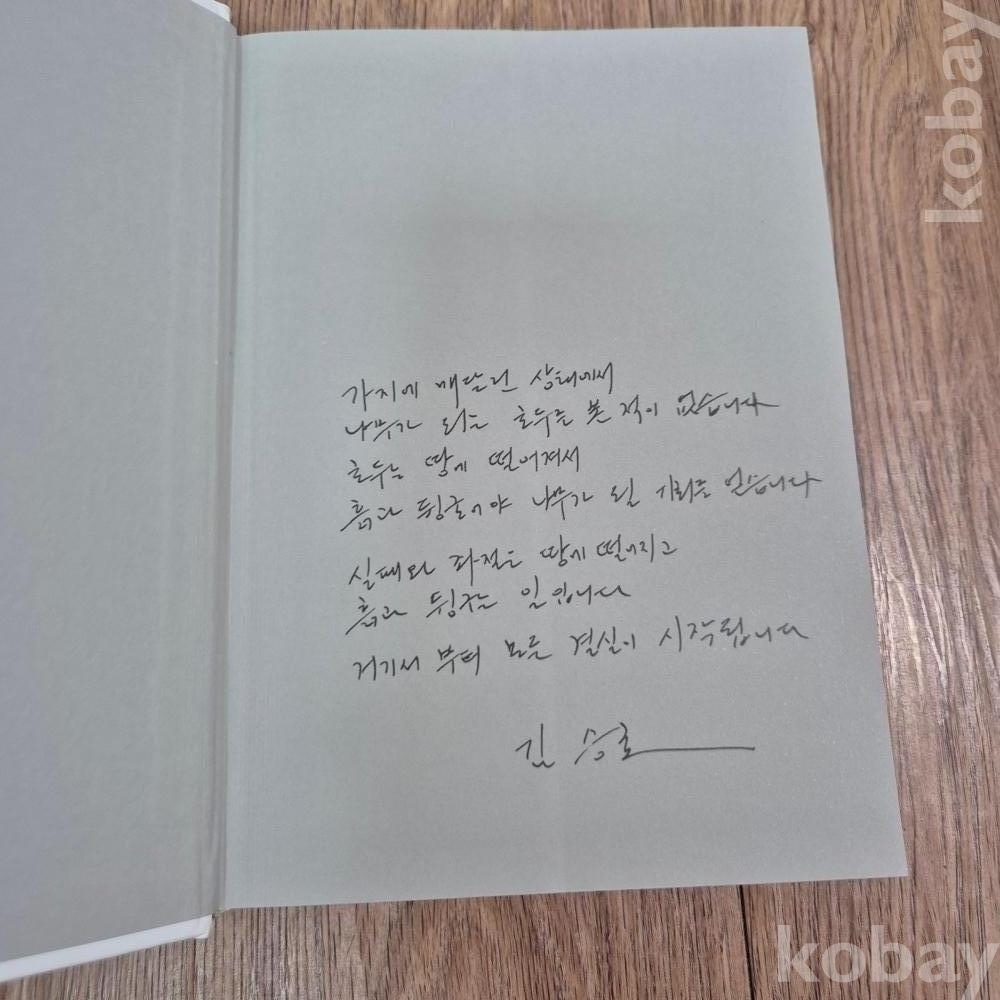 가지에 매달린 상태에서
나무가 되는 호두를 본 적이 없습니다
호두는 땅에 떨어져서
흙과 뒹굴어야 나무가 될 기회를 얻습니다
실패와 좌절은 땅에 떨어지고
흙과 뒹구는 일입니다
거기서 부터 모든 결실이 시작됩니다
김승호
kobay
kobay